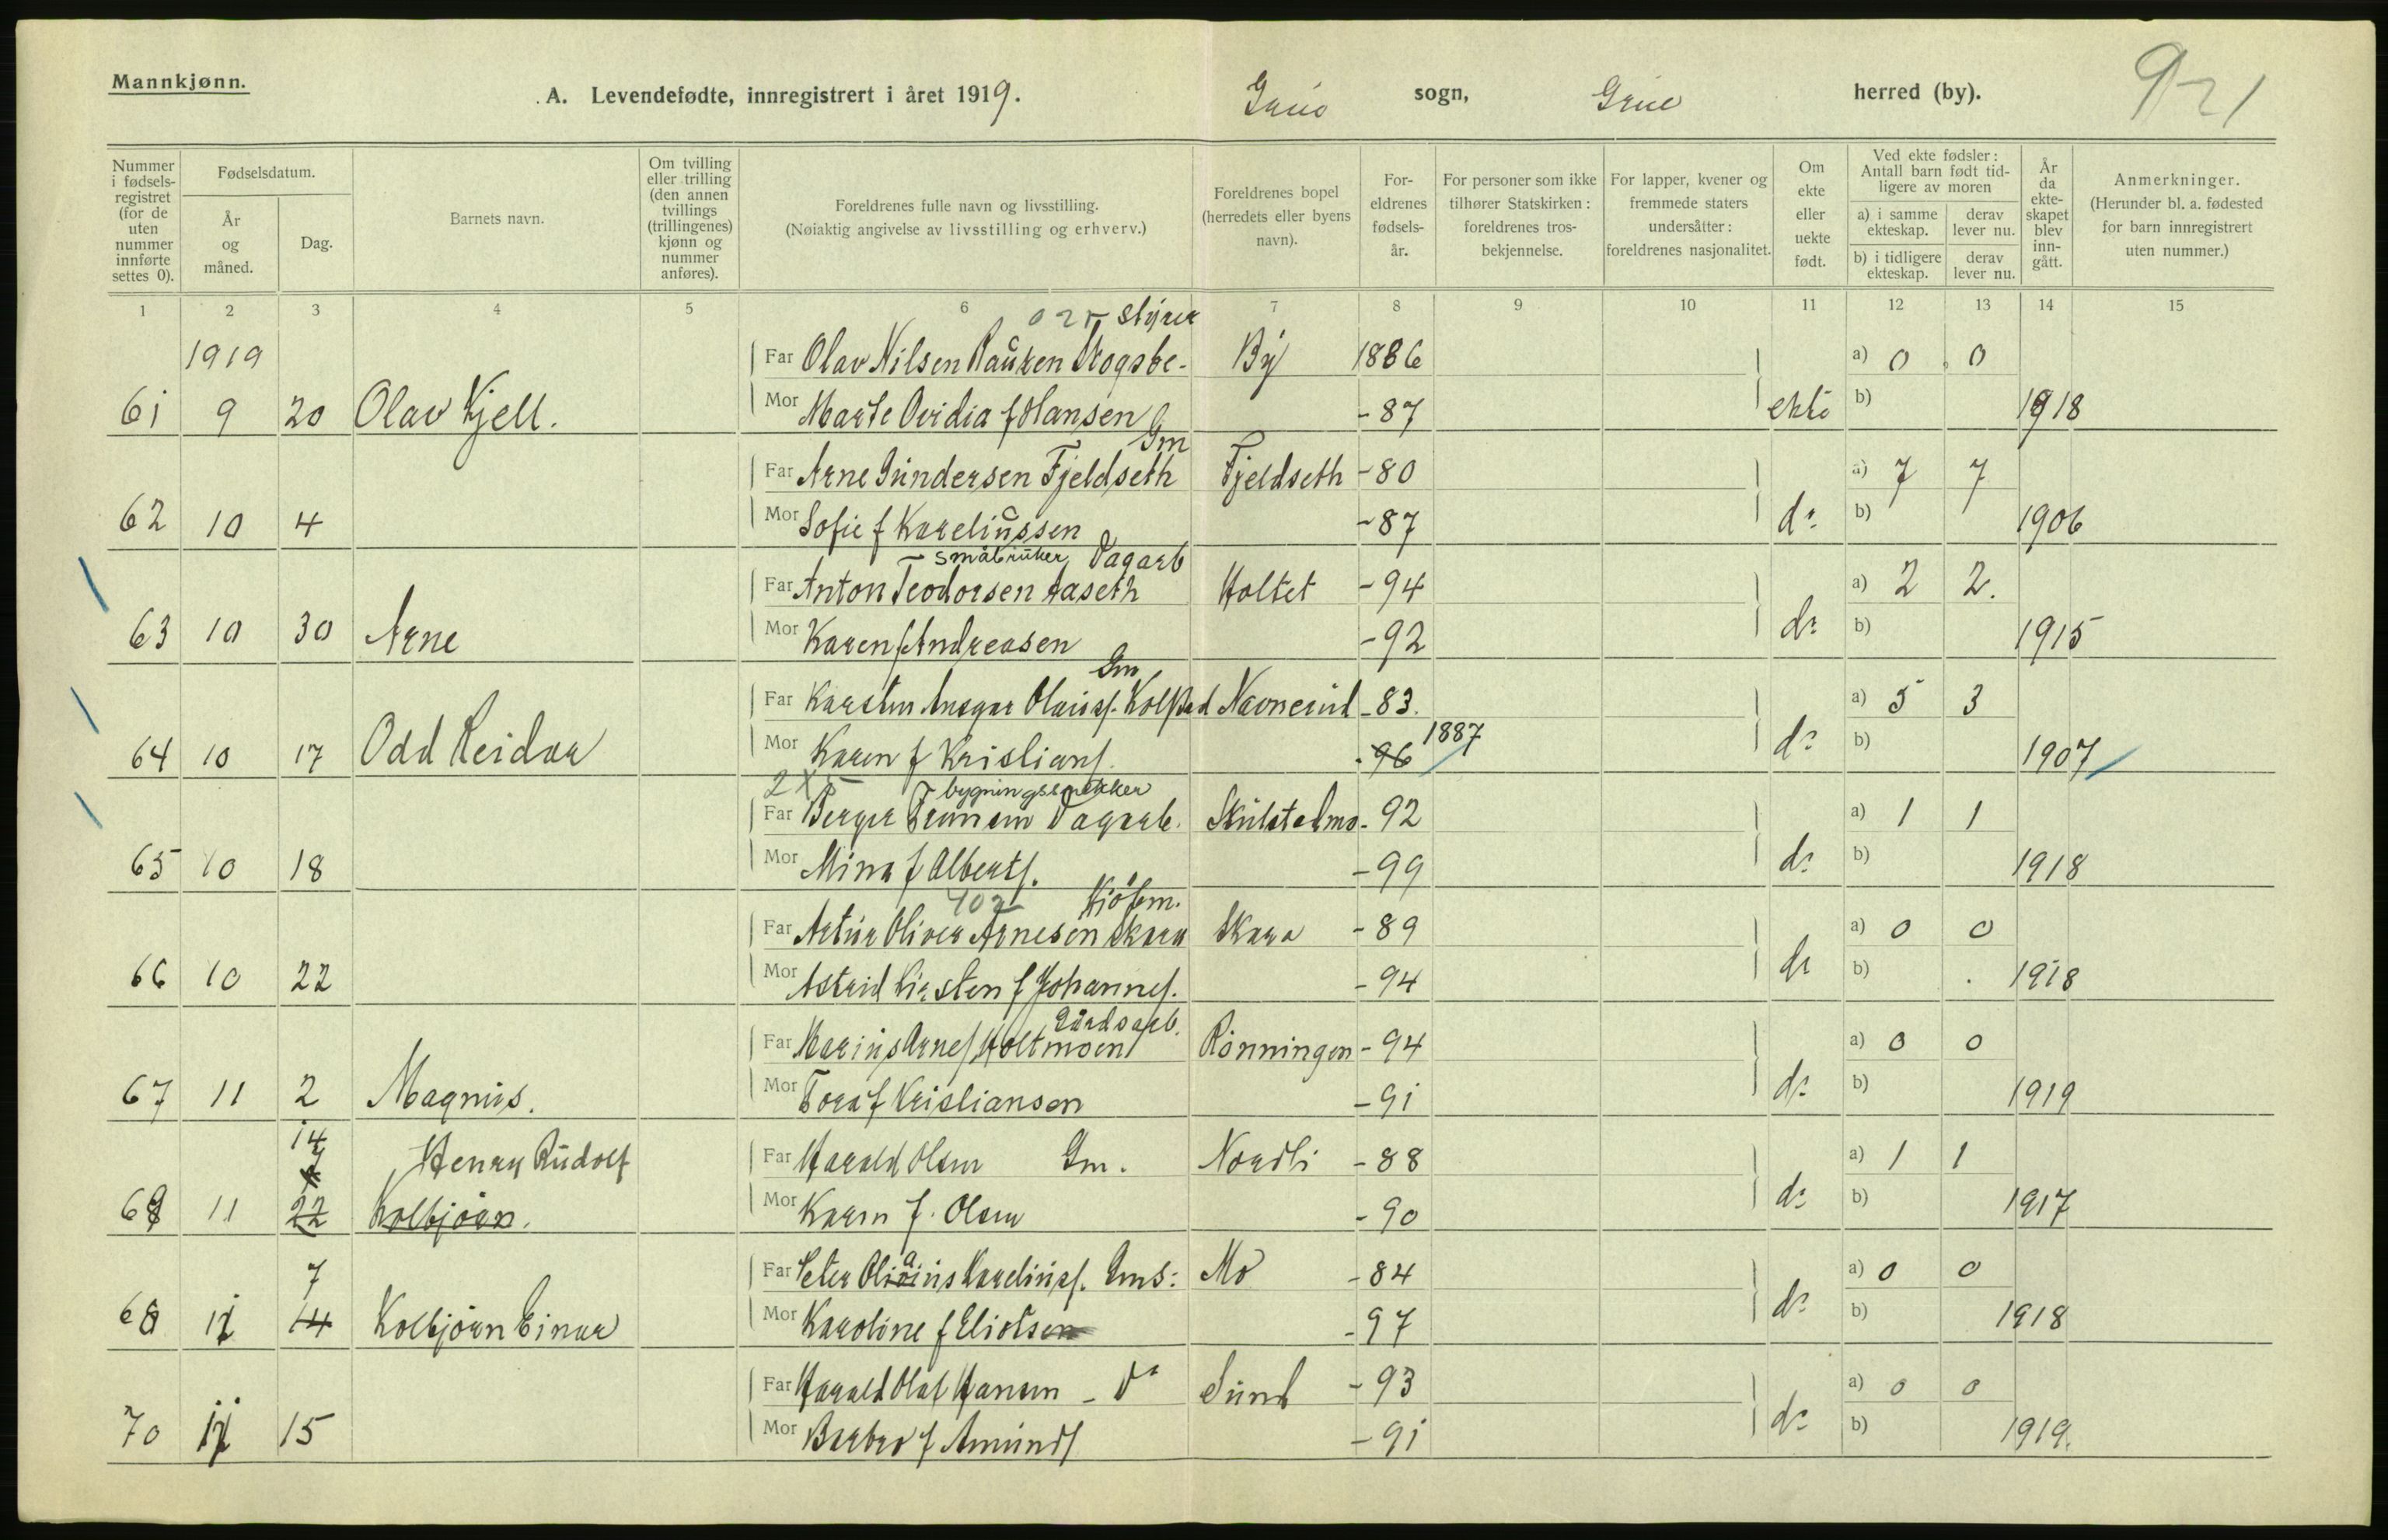 Mannkjønn.
A. Levendefødte, innregistrert i året 1919. Grue sogn, Grue herred (by). 921
Nummer i fødselsregistret (for de uten nummer innførte settes 0).
Fødselsdatum.
År og måned.
Dag.
Barnets navn.
Om tvilling eller trilling (den annen tvillings (trillingenes) kjønn og nummer anføres).
Foreldrenes fulle navn og livsstilling.
(Nøiaktig angivelse av livsstilling og erhverv.)
Foreldrenes bopel (herredets eller byens navn).
Foreldrenes fødselsår.
For personer som ikke tilhører Statskirken: foreldrenes trosbekjennelse.
For lapper, kvener og fremmede staters undersåtter: foreldrenes nasjonalitet.
Om ekte eller uekte født.
Ved ekte fødsler: Antall barn født tidligere av moren
a) i samme ekteskap. derav lever nu.
b) i tidligere ekteskap. derav lever nu.
År da ekteskapet blev inngått.
Anmerkninger.
(Herunder bl. a. fødested for barn innregistrert uten nummer.)
1 2 3 4 5 6 7 8 9 10 11 12 13 14 15
styrer
1919 Far Olav Nilsen Skogsbe- By 1886 a) 0 0
61 9 20 Olav Kjell. Mor Marte Ovidia f Hansen - 87 ekte b) 1918
Gm
Far Arne Gundersen Fjeldseth Fjeldseth - 80 a) 7 7
62 10 4 Mor Sofie f Kareliussen - 87 do b) 1906
småbruker, Dagarb
Far Anton Teodorsen Aaseth Holtet - 94 a) 2 2.
63 10 30 Arne Mor Karen f Andreasen - 92 do b) 1915
Gm
Far Karsten Ansgar Olauss. Kolstad - 83. a) 5 3
64 10 17 Odd Reidar Mor Karen f Kristians. - 96 1887 do b) 1907
bygningssnekker
Far Berger Dagarb. - 92 a) 1 1
65 10 18 Mor Mina f Alberts. - 99 do b) 1918
402 Kjøbm.
Far Artur Oliver Arnesen Skara Skara - 89 a) 0 0
66 10 22 Mor Astrid Kirsten f Johannes. - 94 do b) 1918
Gårdsarb.
Far Marius Arnes. Holtmoen Rønningen - 94 a) 0 0
67 11 2 Magnus. Mor Tora f Kristiansen - 91 do b) 1919
14 Henry Rudolf Far Harald Olsen Gm. Nordli - 88 a) 1 1
69 11 22 Kolbjørn. Mor Karen f. Olsen - 90 do b) 1917
7 Far Peter Karelius. Gms: Mo - 84 a) 0 0
68 11 14 Kolbjørn Einar Mor Karoline f Eliotsen - 97 do b) 1918
Far Harald Olaf Hansen - do Sund - 93 a) 0 0
70 11 15 Mor Barbro f Amunds - 91 do b) 1919.